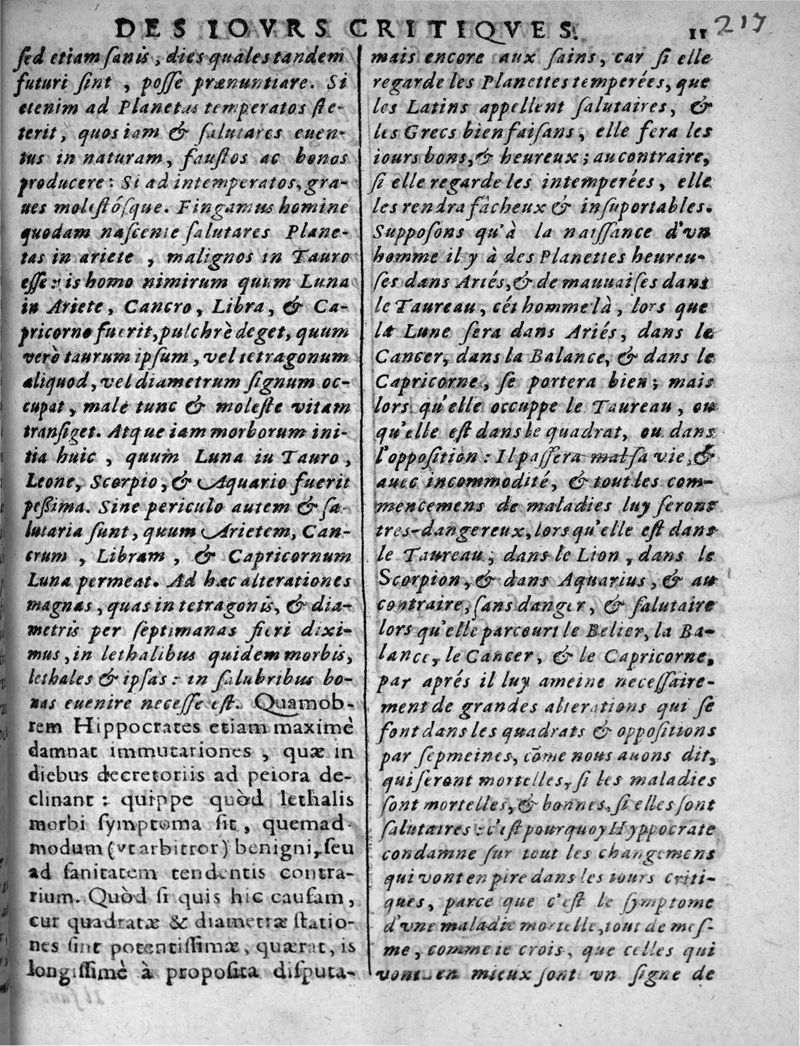 DES IOVRS CRITIQVES. 11 217
sed etiam sanis, dies quales tandem
futuri sint, posse prænuntiare. Si
etenim ad Planetas temperatos ste-
terit, quos iam & salutares euen-
tus in naturam, faustos ac bonos
producere: Si ad intemperatos, gra-
ues molestósque. Fingamus homine
quodam nascente salutares Plane-
tas in ariete, malignos in Tauro
esse: is homo nimirum quum Luna
in Ariete, Cancro, Libra, & Ca-
pricorno fuerit, pulchrè deget, quum
verò taurum ipsum, vel tetragonum
aliquod, vel diametrum signum oc-
cupat, malè tunc & moleste vitam
transiget. Atque iam morborum ini-
tia huic, quum Luna iu Tauro,
Leone, Scorpio, & Aquario fuerit
pessima. Sine periculo autem & sa-
lutaria sunt, quum Arietem, Can-
crum, Libram, & Capricornum
Luna permeat. Ad hæc alterationes
magnas, quas in tetragonis, & dia-
metris per septimanas fieri dixi-
mus, in lethalibus quidem morbis,
lethales & ipsas: in salubribus bo-
nas euenire necesse est. Quamob-
rem Hippocrates etiam maximè
damnat immutationes, quæ in
diebus decretoriis ad peiora de-
clinant: quippe quòd lethalis
morbi symptoma sit, quemad-
modum (vt arbitror) benigni, seu
ad sanitatem tendentis contra-
rium. Quòd si quis hic causam,
cur quadratæ & diametræ statio-
nes sint potentissimæ, quærat, is
longissimè à proposita disputa-
mais encore aux sains, car si elle
regarde les Planettes temperées, que
les Latins appellent salutaires, &
les Grecs bienfaisans, elle fera les
iours bons, & heureux; au contraire,
si elle regarde les intemperées, elle
les rendra fâcheux & insuportables.
Supposons qu'à la naissance d'vn
homme il y à des Planettes heureu-
ses dans Ariés, & de mauuaises dans
le Taureau, cét homme là, lors que
la Lune sera dans Ariés, dans le
Cancer, dans la Balance, & dans le
Capricorne, se portera bien; mais
lors qu'elle occuppe le Taureau, ou
qu'elle est dans le quadrat, ou dans
l'opposition: Il passera mal sa vie, &
auec incommodité, & tout les com-
mencemens de maladies luy seront
tres-dangereux, lors qu'elle est dans
le Taureau, dans le Lion, dans le
Scorpion, & dans Aquarius, & au
contraire, sans danger, & salutaire
lors qu'elle parcourt le Belier, la Ba-
lance, le Cancer, & le Capricorne,
par aprés il luy ameine necessaire-
ment de grandes alterations qui se
font dans les quadrats & oppositions
par sepmeines, cõme nous auons dit,
qui seront mortelles, si les maladies
sont mortelles, & bonnes, si elles sont
salutaires: c'est pourquoy Hyppocrate
condamne sur tout les changemens
qui vont en pire dans les iours criti-
ques, parce que c'est le symptome
d'vne maladie mortelle, tout de mes-
me, comme ie crois, que celles qui
vont en mieux sont vn signe de